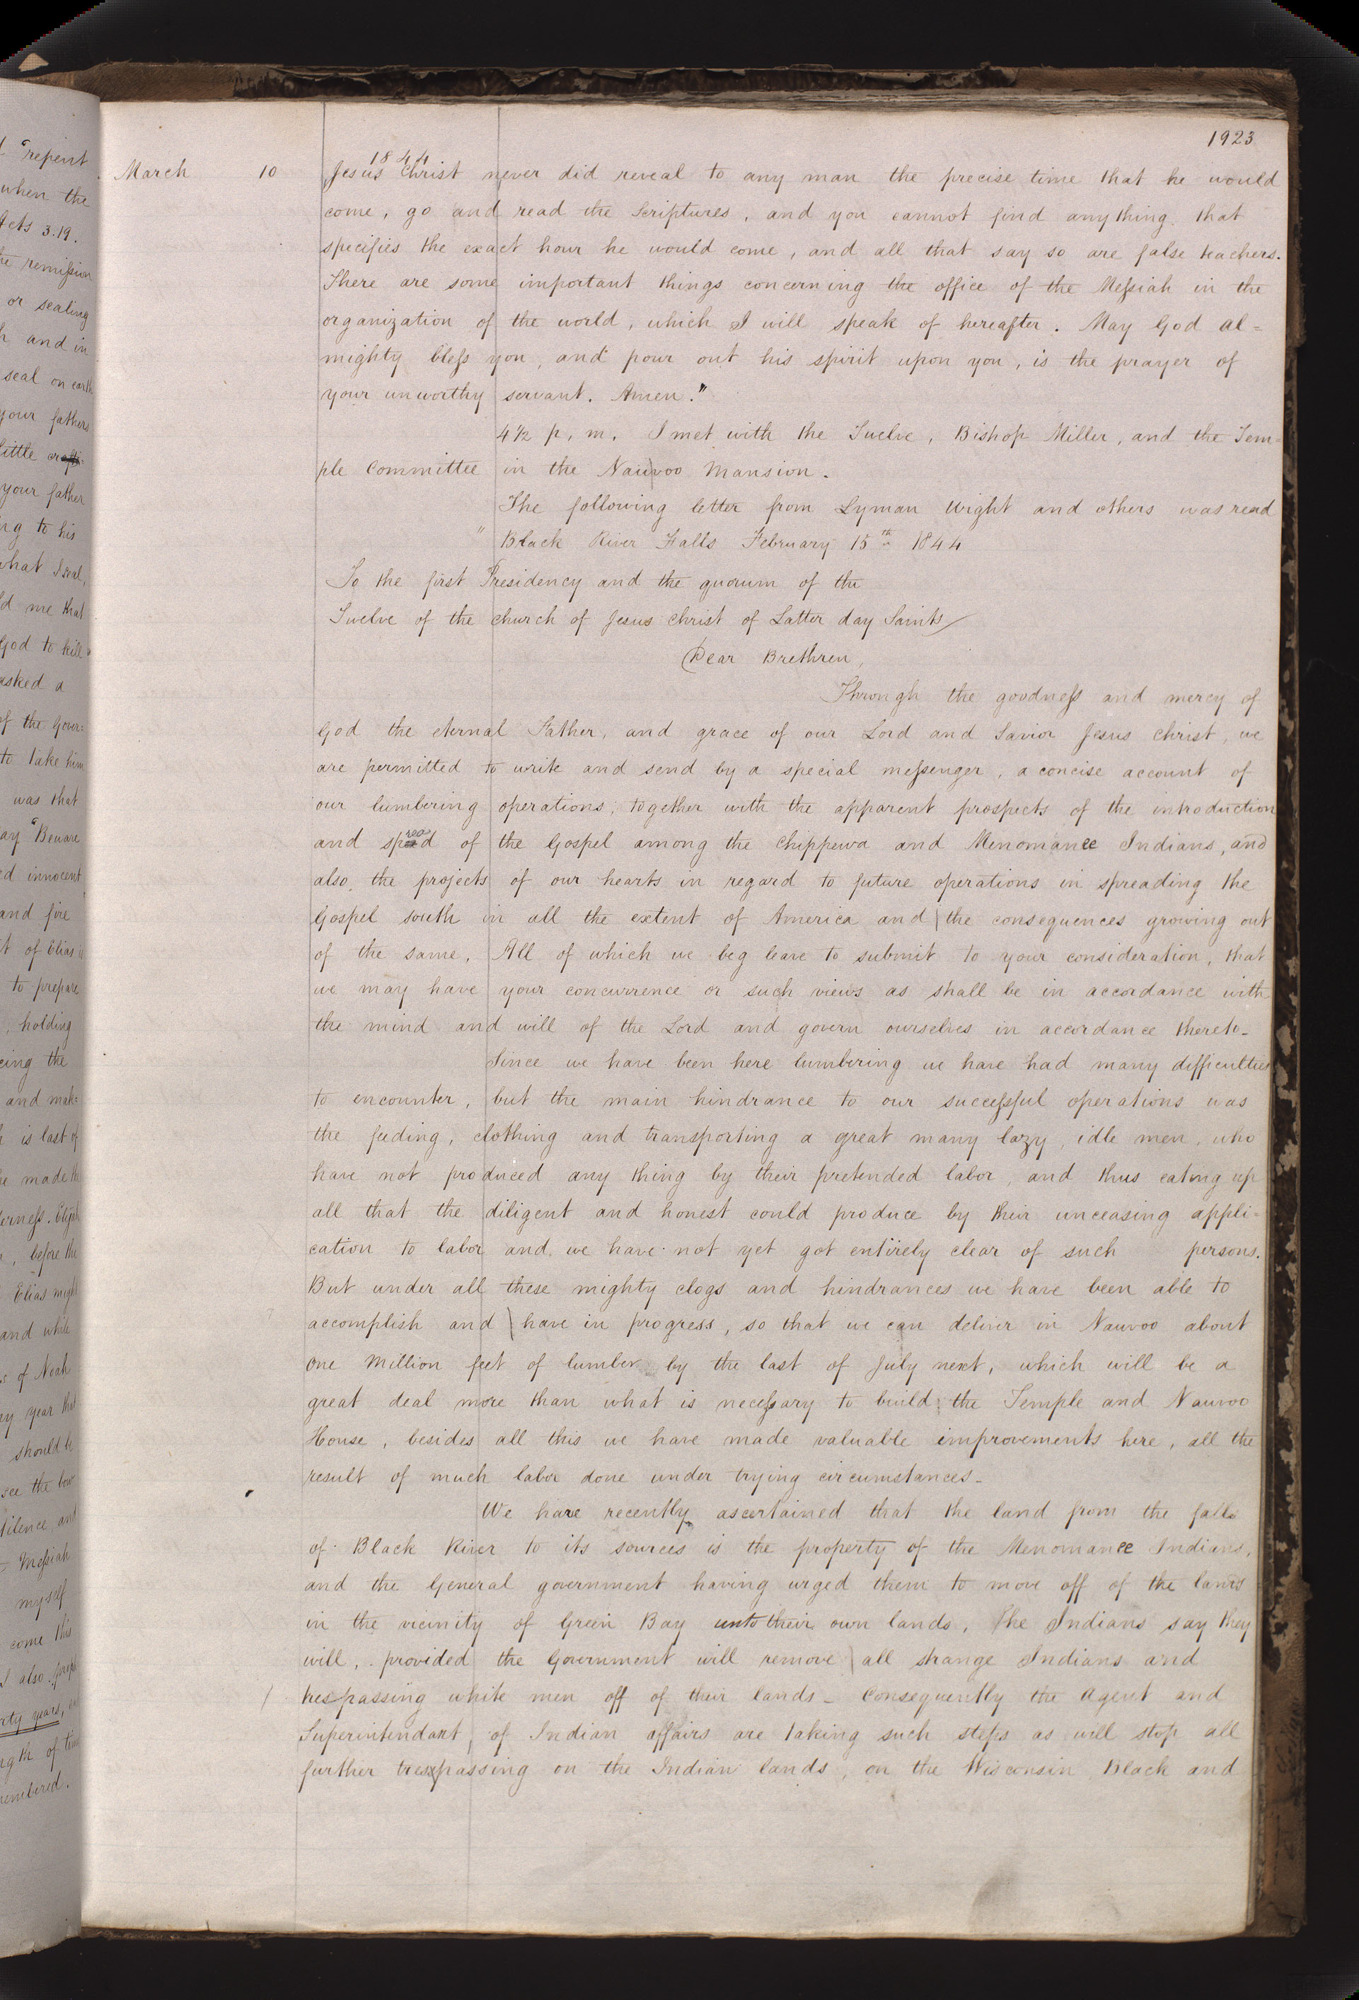 1923
1844
March 10 Jesus Christ never did reveal to any man the precise time that he would
come, go and read the Scriptures, and you cannot find anything that
specifies the exact hour he would come, and all that say so are false teachers.
There are some important things concerning the office of the Messiah in the
organization of the world, which I will speak of hereafter. May God al=
mighty bless you, and pour out his spirit upon you, is the prayer of
your unworthy servant. Amen."
4½ p. m. I met with the Twelve, Bishop Miller, and the Tem-
ple Committee in the Nauvoo Mansion.
The following letter from Lyman Wight and others was read
" Black River Falls February 15th 1844
To the first Presidency and the quorum of the
Twelve of the church of Jesus Christ of Latter day Saints
Dear Brethren,
Through the goodness and mercy of
God the eternal Father, and grace of our Lord and Savior Jesus Christ, we
are permitted to write and send by a special messenger, a concise account of
our lumbering operations, together with the apparent prospects of the introduction
and spread of the Gospel among the Chippewa and Menomanee Indians, and
also, the projects of our hearts in regard to future operations in spreading the
Gospel south in all the extent of America and the consequences growing out
of the same. All of which we beg leave to submit to your consideration, that
we may have your concurrence or such views as shall be in accordance with
the mind and will of the Lord and govern ourselves in accordance thereto-
Since we have been here lumbering we have had many difficulties
to encounter, but the main hindrance to our successful operations was
the feeding, clothing and transporting a great many lazy, idle men, who
have not produced any thing by their pretended labor, and thus eating up
all that the diligent and honest could produce by their unceasing appli-
cation to labor and we have not yet got entirely clear of such persons.
But under all these mighty clogs and hindrances we have been able to
accomplish and have in progress, so that we can deliver in Nauvoo about
one Million feet of lumber by the last of July next, which will be a
great deal more than what is necessary to build the Temple and Nauvoo
House, besides all this we have made valuable improvements here, all the
result of much labor done under trying circumstances-
We have recently ascertained that the land from the falls
of Black River to its sources is the property of the Menomanee Indians,
and the General government having urged them to move off of the lands
in the vicinity of Green Bay unto their own lands, The Indians say they
will, provided the Government will remove all strange Indians and
trespassing white men off of their lands- Consequently the Agent and
Superintendant of Indian affairs are taking such steps as will stop all
further trespassing on the Indian lands, on the Wisconsin Black and
repent
when the
Acts 3.19.
remission
or sealing
and in
seal on earth
your fathers
little
your father
to his
what I seal,
me that
God to kill
asked a
of the Gover=
to take him
was that
"Beware
innocent
and fire
of Elias
to prepare
holding
the
and mak=
is last of
he made the
before the
Elias might
and while
of Noah
year that
should be
see the bow
and
Messiah
myself
come this
also
years,
of time